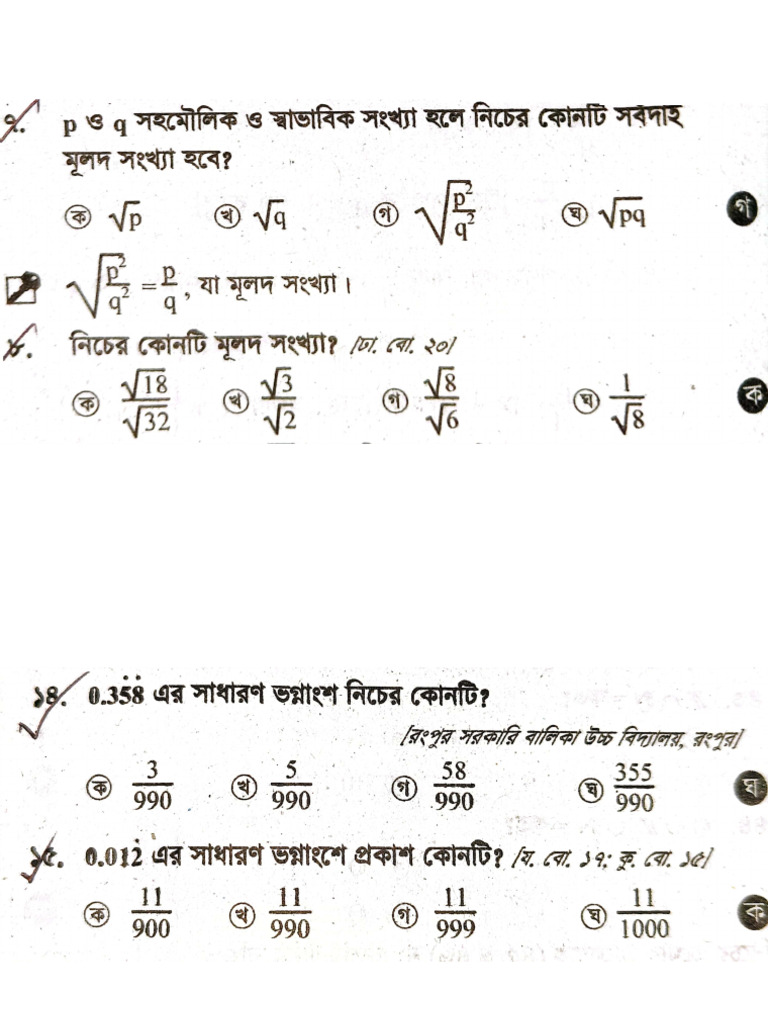 ৭. p ও q সহমৌলিক ও স্বাভাবিক সংখ্যা হলে নিচের কোনটি সর্বদাই
মূলদ সংখ্যা হবে?
ক √p খ √q গ √(p²/q²) ঘ √pq গ
√(p²/q²) = p/q, যা মূলদ সংখ্যা।
৮. নিচের কোনটি মূলদ সংখ্যা? [ঢা. বো. ২০]
ক √18/√32 খ √3/√2 গ √8/√6 ঘ 1/√8 ক
১৪. 0.35̇8̇ এর সাধারণ ভগ্নাংশ নিচের কোনটি?
[রংপুর সরকারি বালিকা উচ্চ বিদ্যালয়, রংপুর]
ক 3/990 খ 5/990 গ 58/990 ঘ 355/990 ঘ
১৫. 0.012̇ এর সাধারণ ভগ্নাংশে প্রকাশ কোনটি? [য. বো. ১৭; কু. বো. ১৫]
ক 11/900 খ 11/990 গ 11/999 ঘ 11/1000 ক